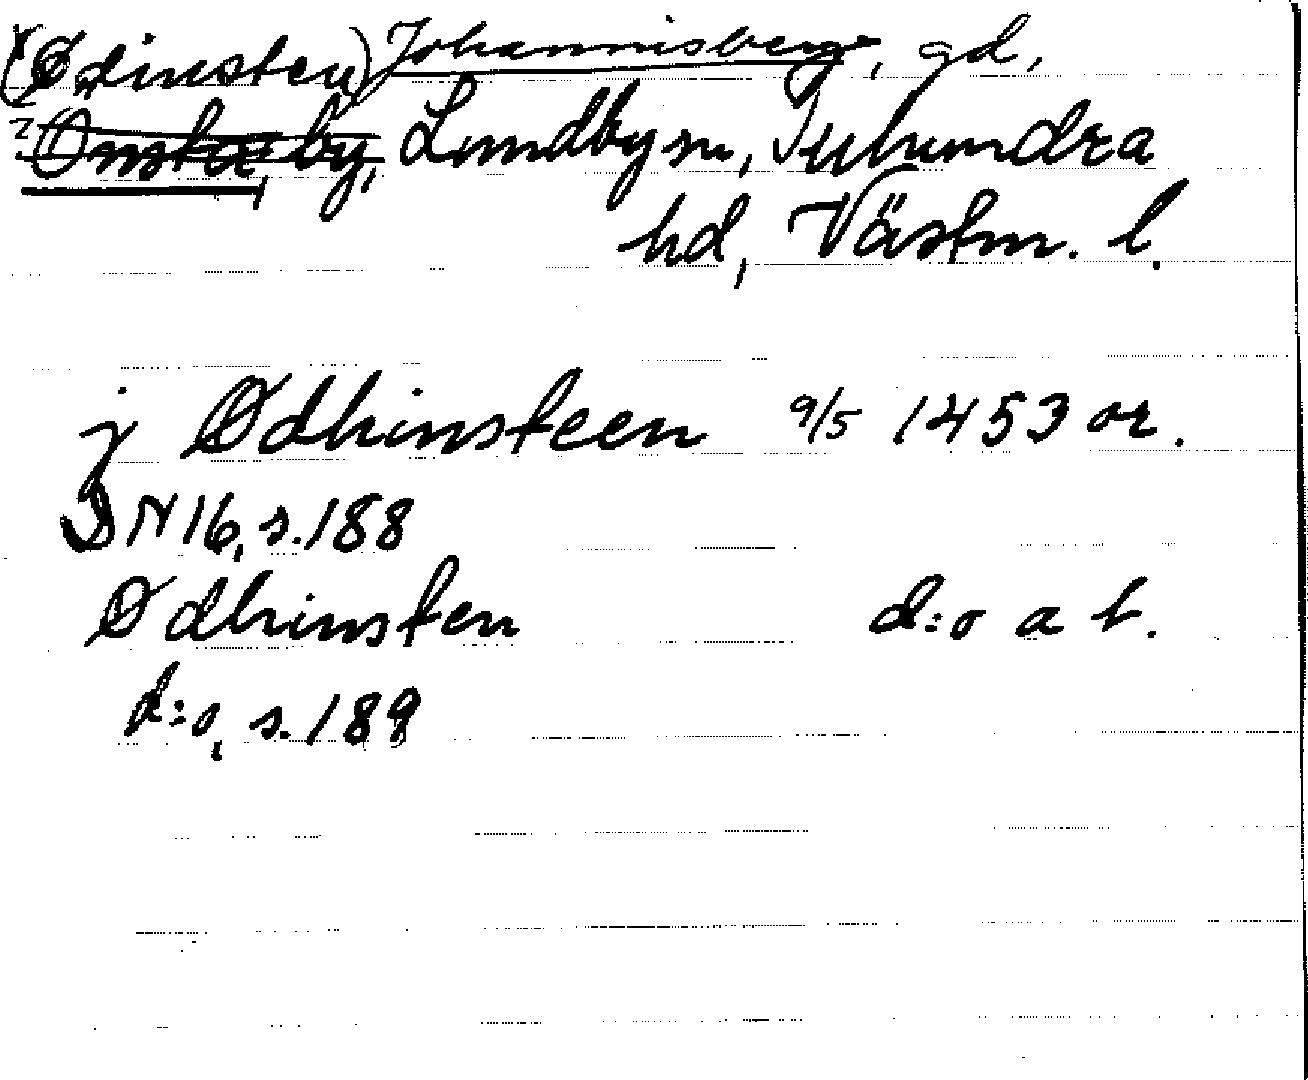 (Ödinsten) Johannisberg, gd,
? Önsta, by, Lundby sn, Tuhundra
hd, Västm. l.
j Ødhinsteen 9/5 1453 or.
DN 16, s. 188
Ødhinsten d:o a t.
d:o, s. 189